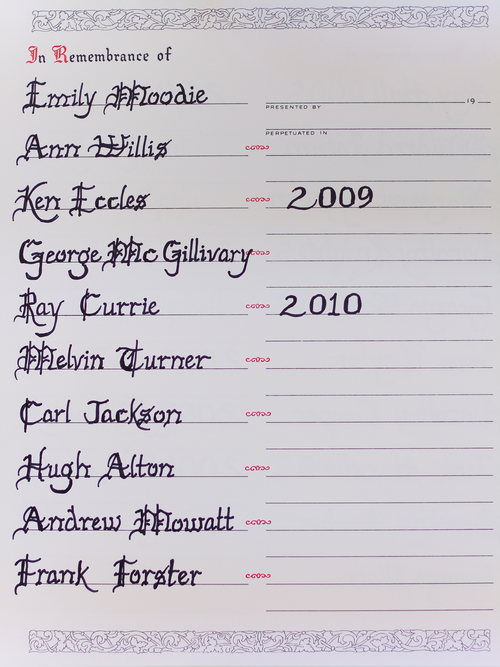 In Remembrance of
Emily Moodie
19
PRESENTED BY
PERPETUATED IN
Ann Willis
Ken Eccles 2009
George Mc Gillivary
Ray Currie 2010
Melvin Turner
Carl Jackson
Hugh Alton
Andrew Mowatt
Frank Forster